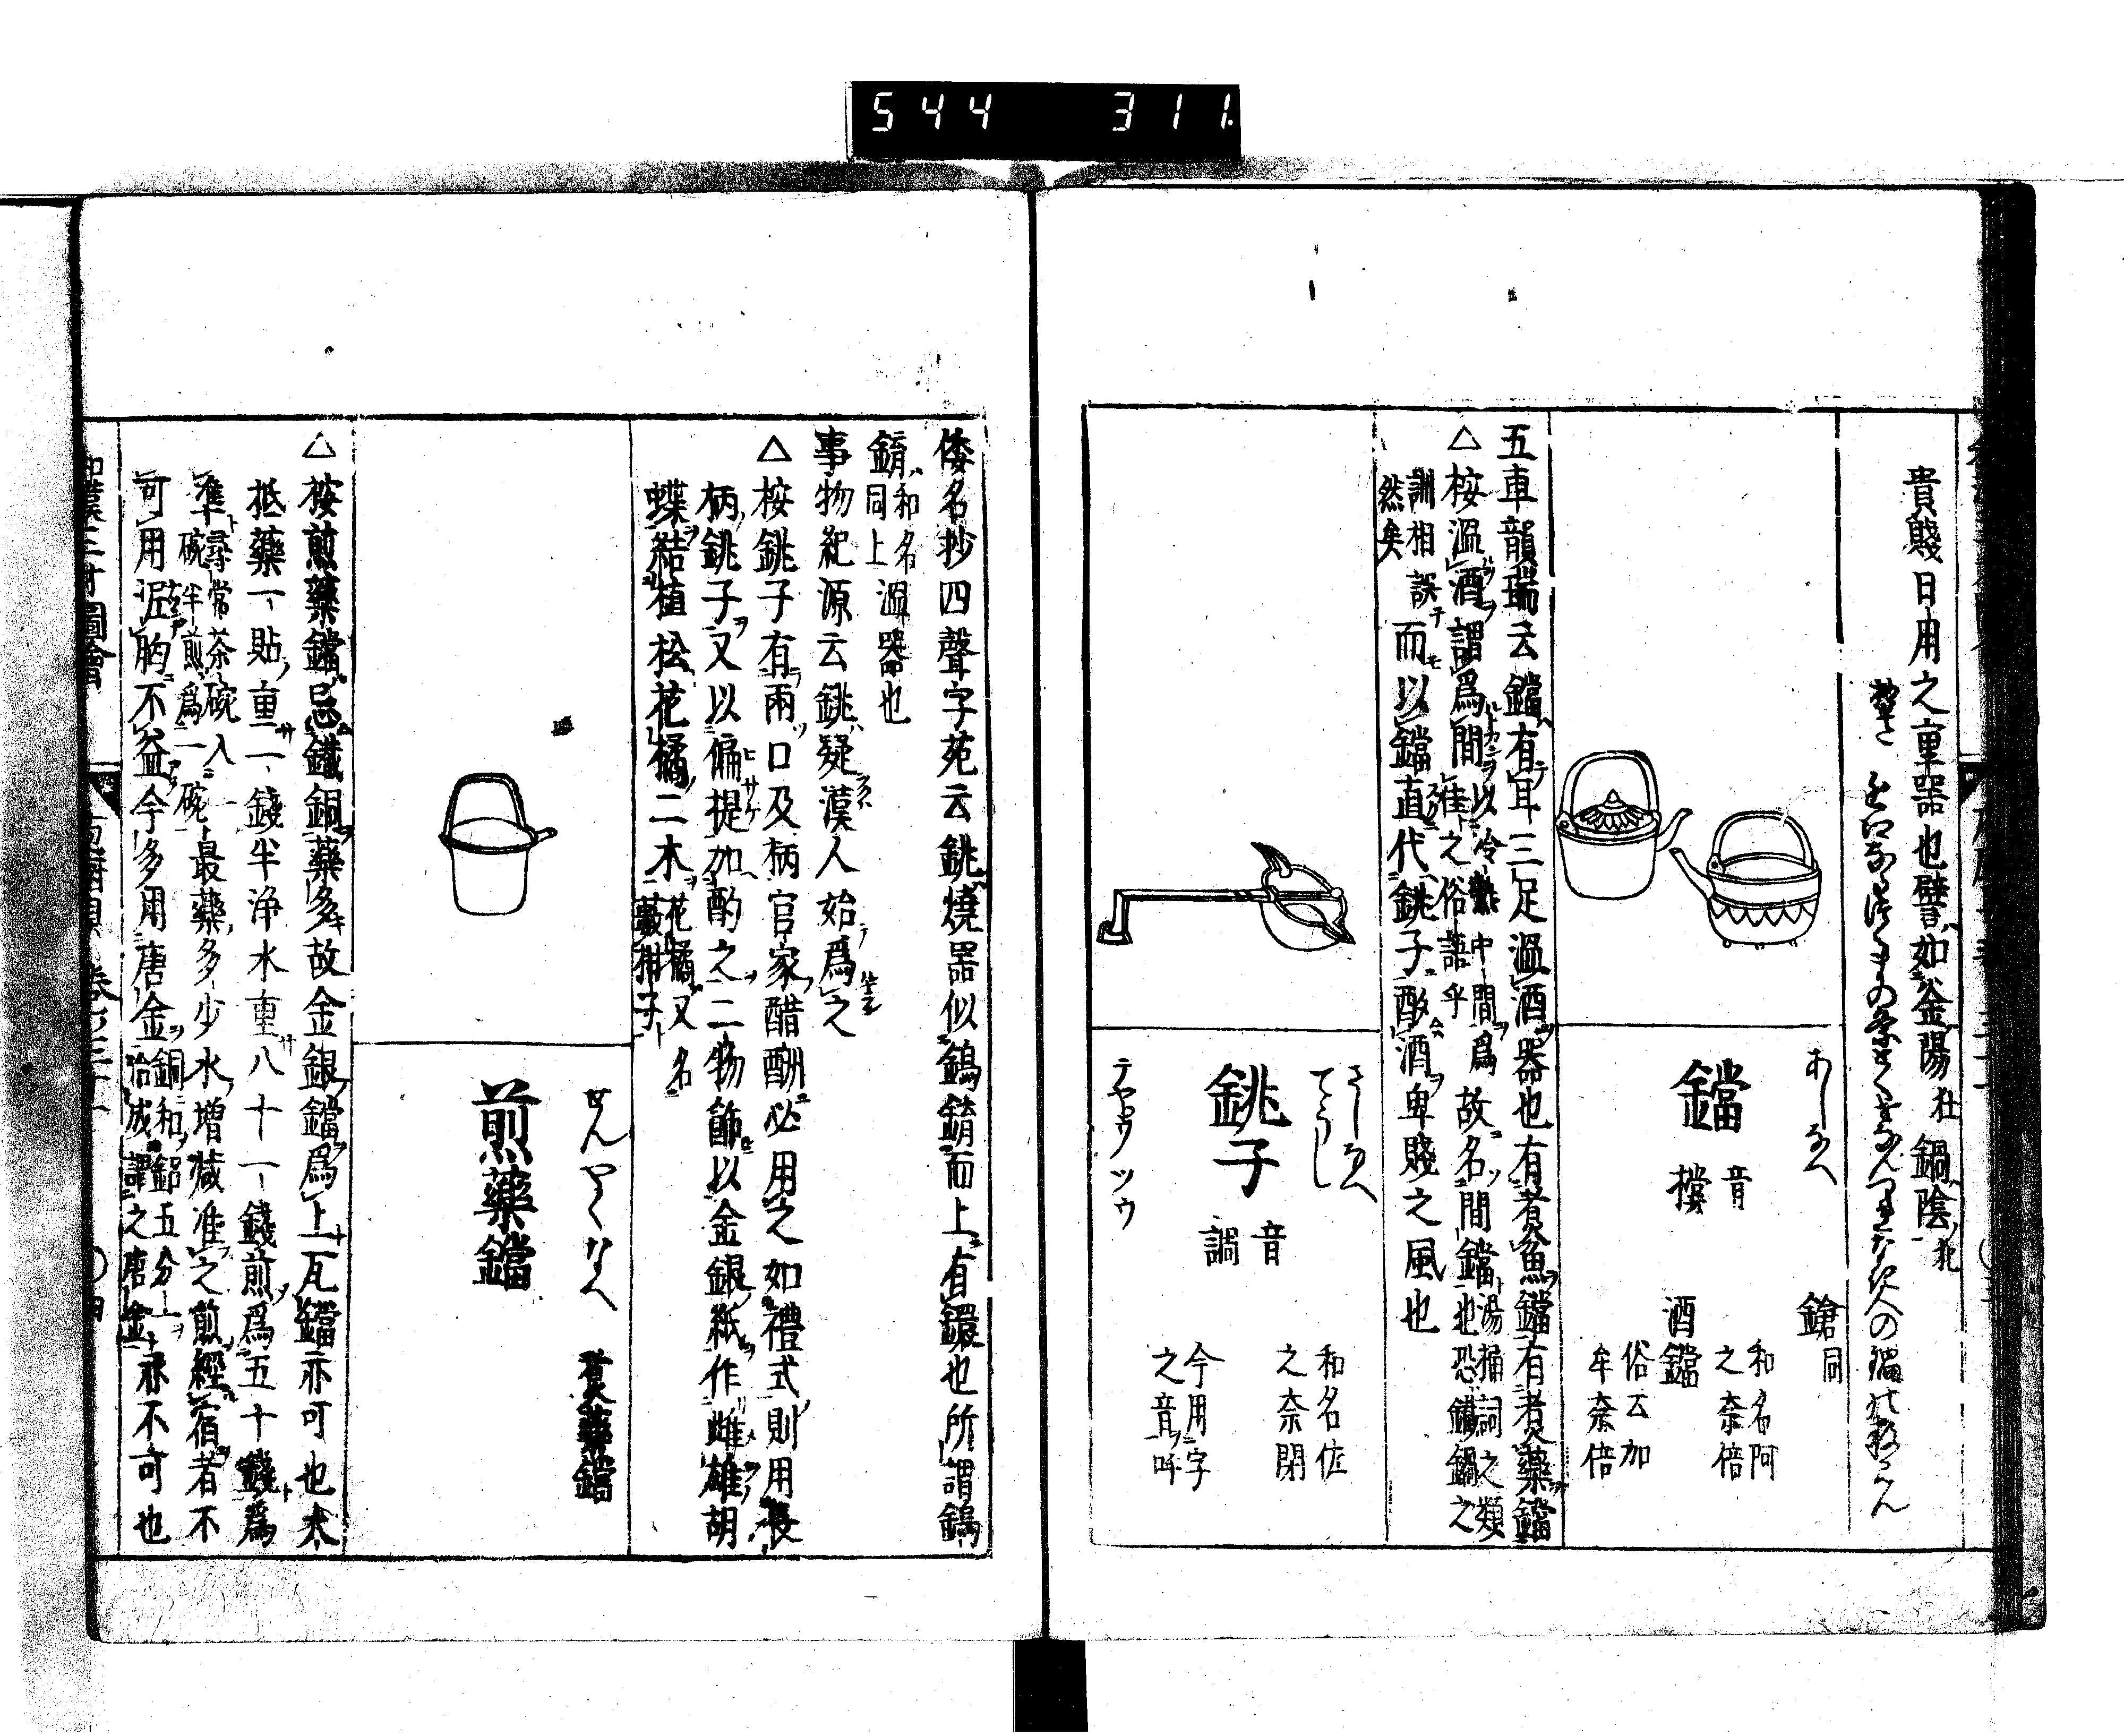 544 311
貴賤日用之重器也譬如釜陽牡鍋陰牝
あしなべ
鐺
音
鎗同
和名阿
之奈倍
酒鐺
俗云加
牟奈倍
五車韻瑞云鐺有耳三足溫酒器也有煮魚鐺有煮藥鐺
△桉溫酒謂爲間以冷熱中間爲故名間鐺湯桶詞之類
准之俗語乎
也恐鑄鍋之
訓相誤而以鐺直代銚子酌酒卑賤之風也
然矣
さしなべ
てうし
銚子
音
調
テヤ゜ウ ツウ
和名佐
之奈閉
今用字
之音呼
倭名抄四聲字苑云銚燒器似鎢錥而上有鐶也所謂鎢
錥和名
同上
溫器也
事物紀源云銚疑漢人始爲之
△桉銚子有兩口及柄官家醋酬必用之如禮式則用長
柄銚子又以偏提加酌之二物餙以金銀紙作雌雄胡
蝶結植松花橘二木花橘又名
藪柑子
せんやくなべ
煎藥鐺
煮藥鐺
△桉煎藥鐺忌鐵銅藥多故金銀鐺爲上瓦鐺亦可也大
抵藥一貼重一錢半浄水重八十一錢煎爲五十錢爲
準尋常茶碗入一
碗半煎爲一碗
最藥多少水增減准之煎經宿者不
可用泥胞不益今多用唐金銅和鉛五分一
恰成謂之唐金
亦不可也
和漢三才圖會